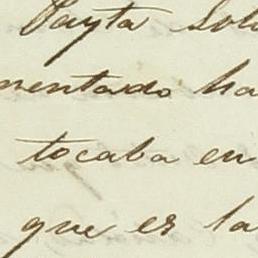 Payta Sol
mentado ha
tocaba en
que es la